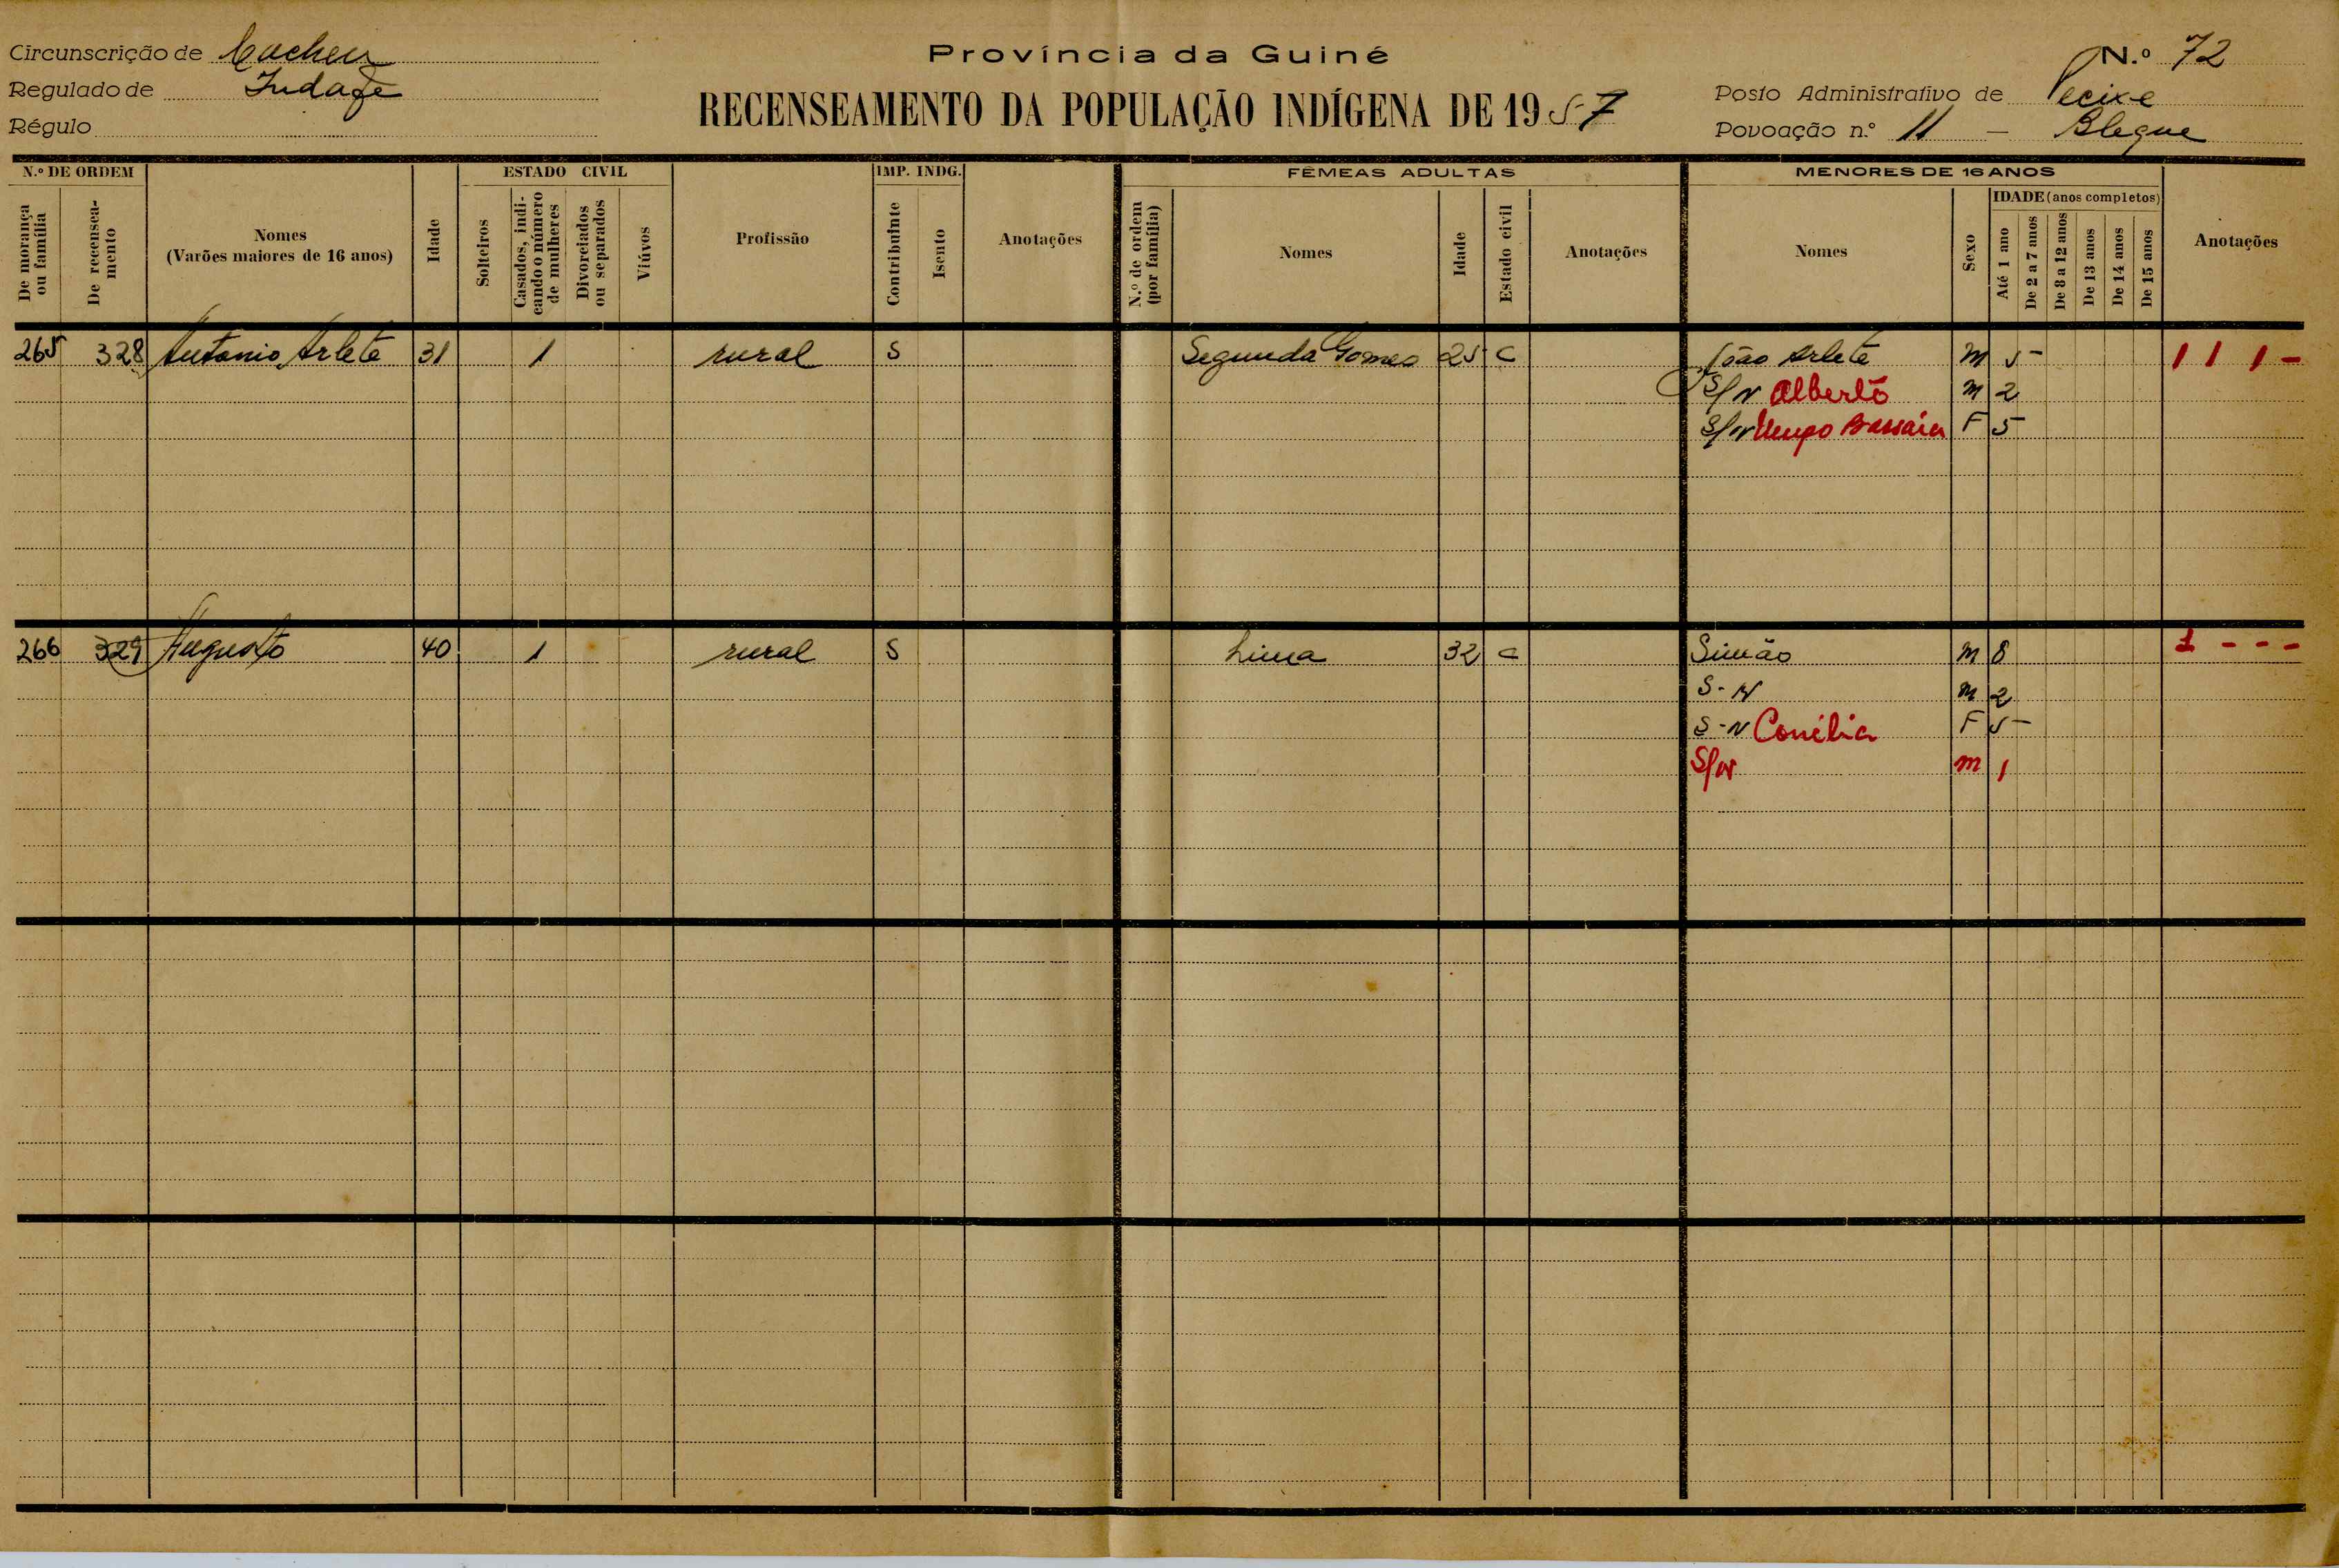 Circunscrição de Cacheu
Regulado de
Régulo
Província da Guiné
RECENSEAMENTO DA POPULAÇÃO INDÍGENA DE 1957
N.º 72
Posto Administrativo de Pecixe
Povoação n.º 11 –
N.º DE ORDEM
De morança ou família
De recenseamento
Nomes
(Varões maiores de 16 anos)
Idade
ESTADO CIVIL
Solteiros
Casados, indicando o número de mulheres
Divorciados ou separados
Viúvos
Profissão
IMP. INDG.
Contribuinte
Isento
Anotações
FÊMEAS ADULTAS
N.º de ordem (por família)
Nomes
Idade
Estado civil
Anotações
MENORES DE 16 ANOS
Nomes
Sexo
IDADE (anos completos)
Até 1 ano
De 2 a 7 anos
De 8 a 12 anos
De 13 anos
De 14 anos
De 15 anos
Anotações
265 328 Antonio Arlete 31 1 rural S Segunda Gomes 25 C João Arlete M 5 1 1 1 -
S/N Alberto M 2
S/N F 5
266 329 Augusto 40 1 rural S 32 C Simão M 8 1 - - -
S-N M 2
S-N F 5
S/N M 1